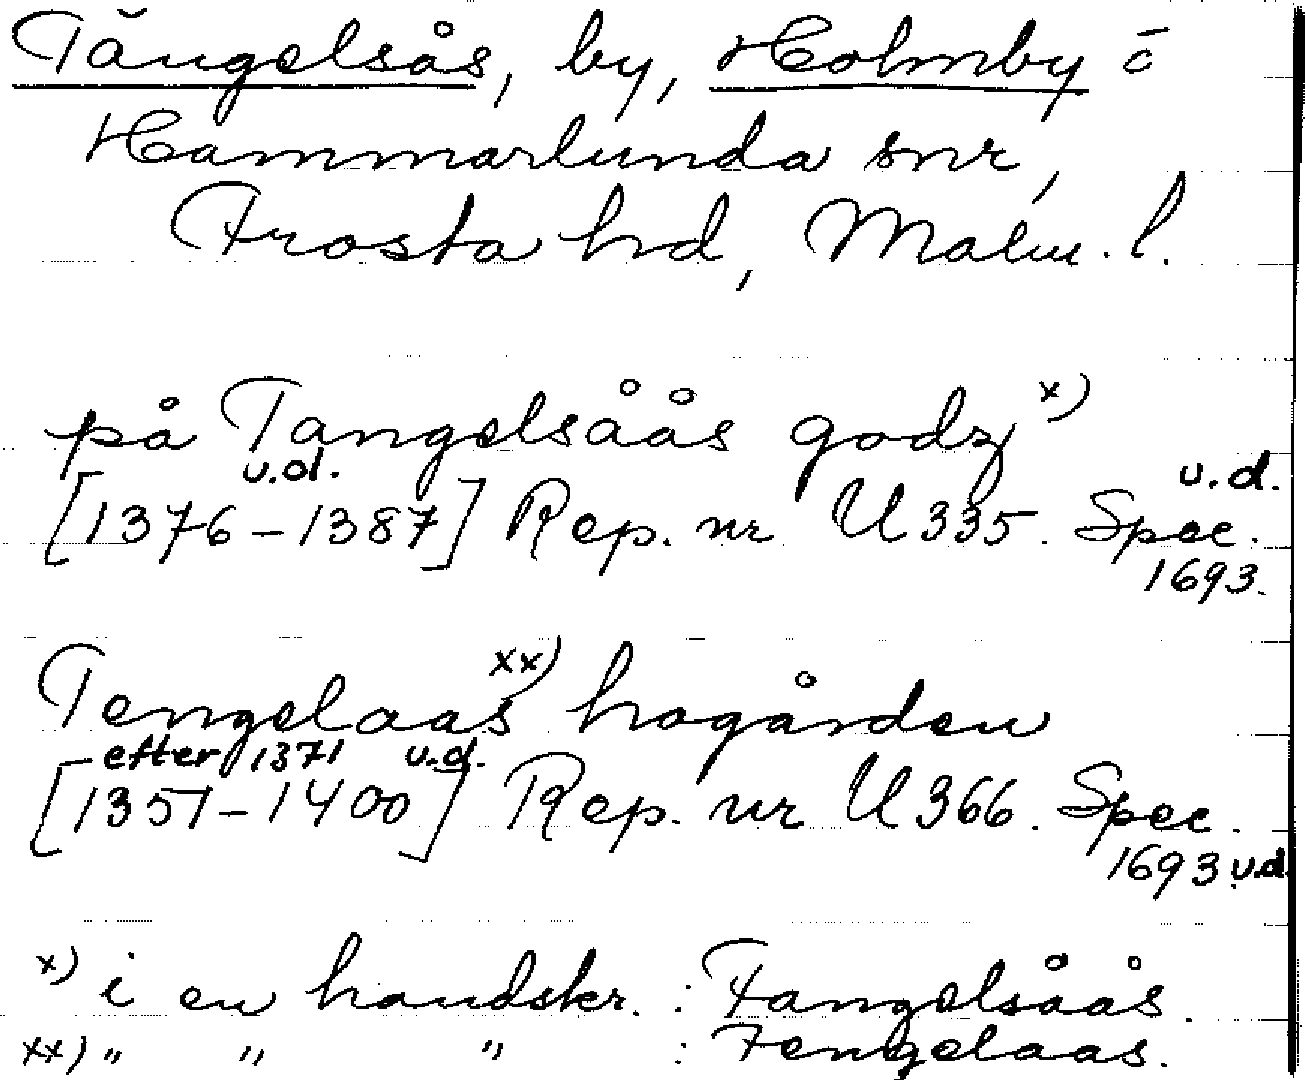 Tängelsås, by, Holmby o
Hammarlunda snr,
Frosta hd, Malm. l.
på Tangelsåås godz x)
u.d. u.d.
[1376-1387] Rep. nr U 335. Spec.
1693.
Tengelaas xx) hogården
efter 1371 u.d.
[1351-1400] Rep. nr U 366. Spec.
1693 u.d.
x) i en handskr. : Fangelsåås.
xx) " " " : Fengelaas.